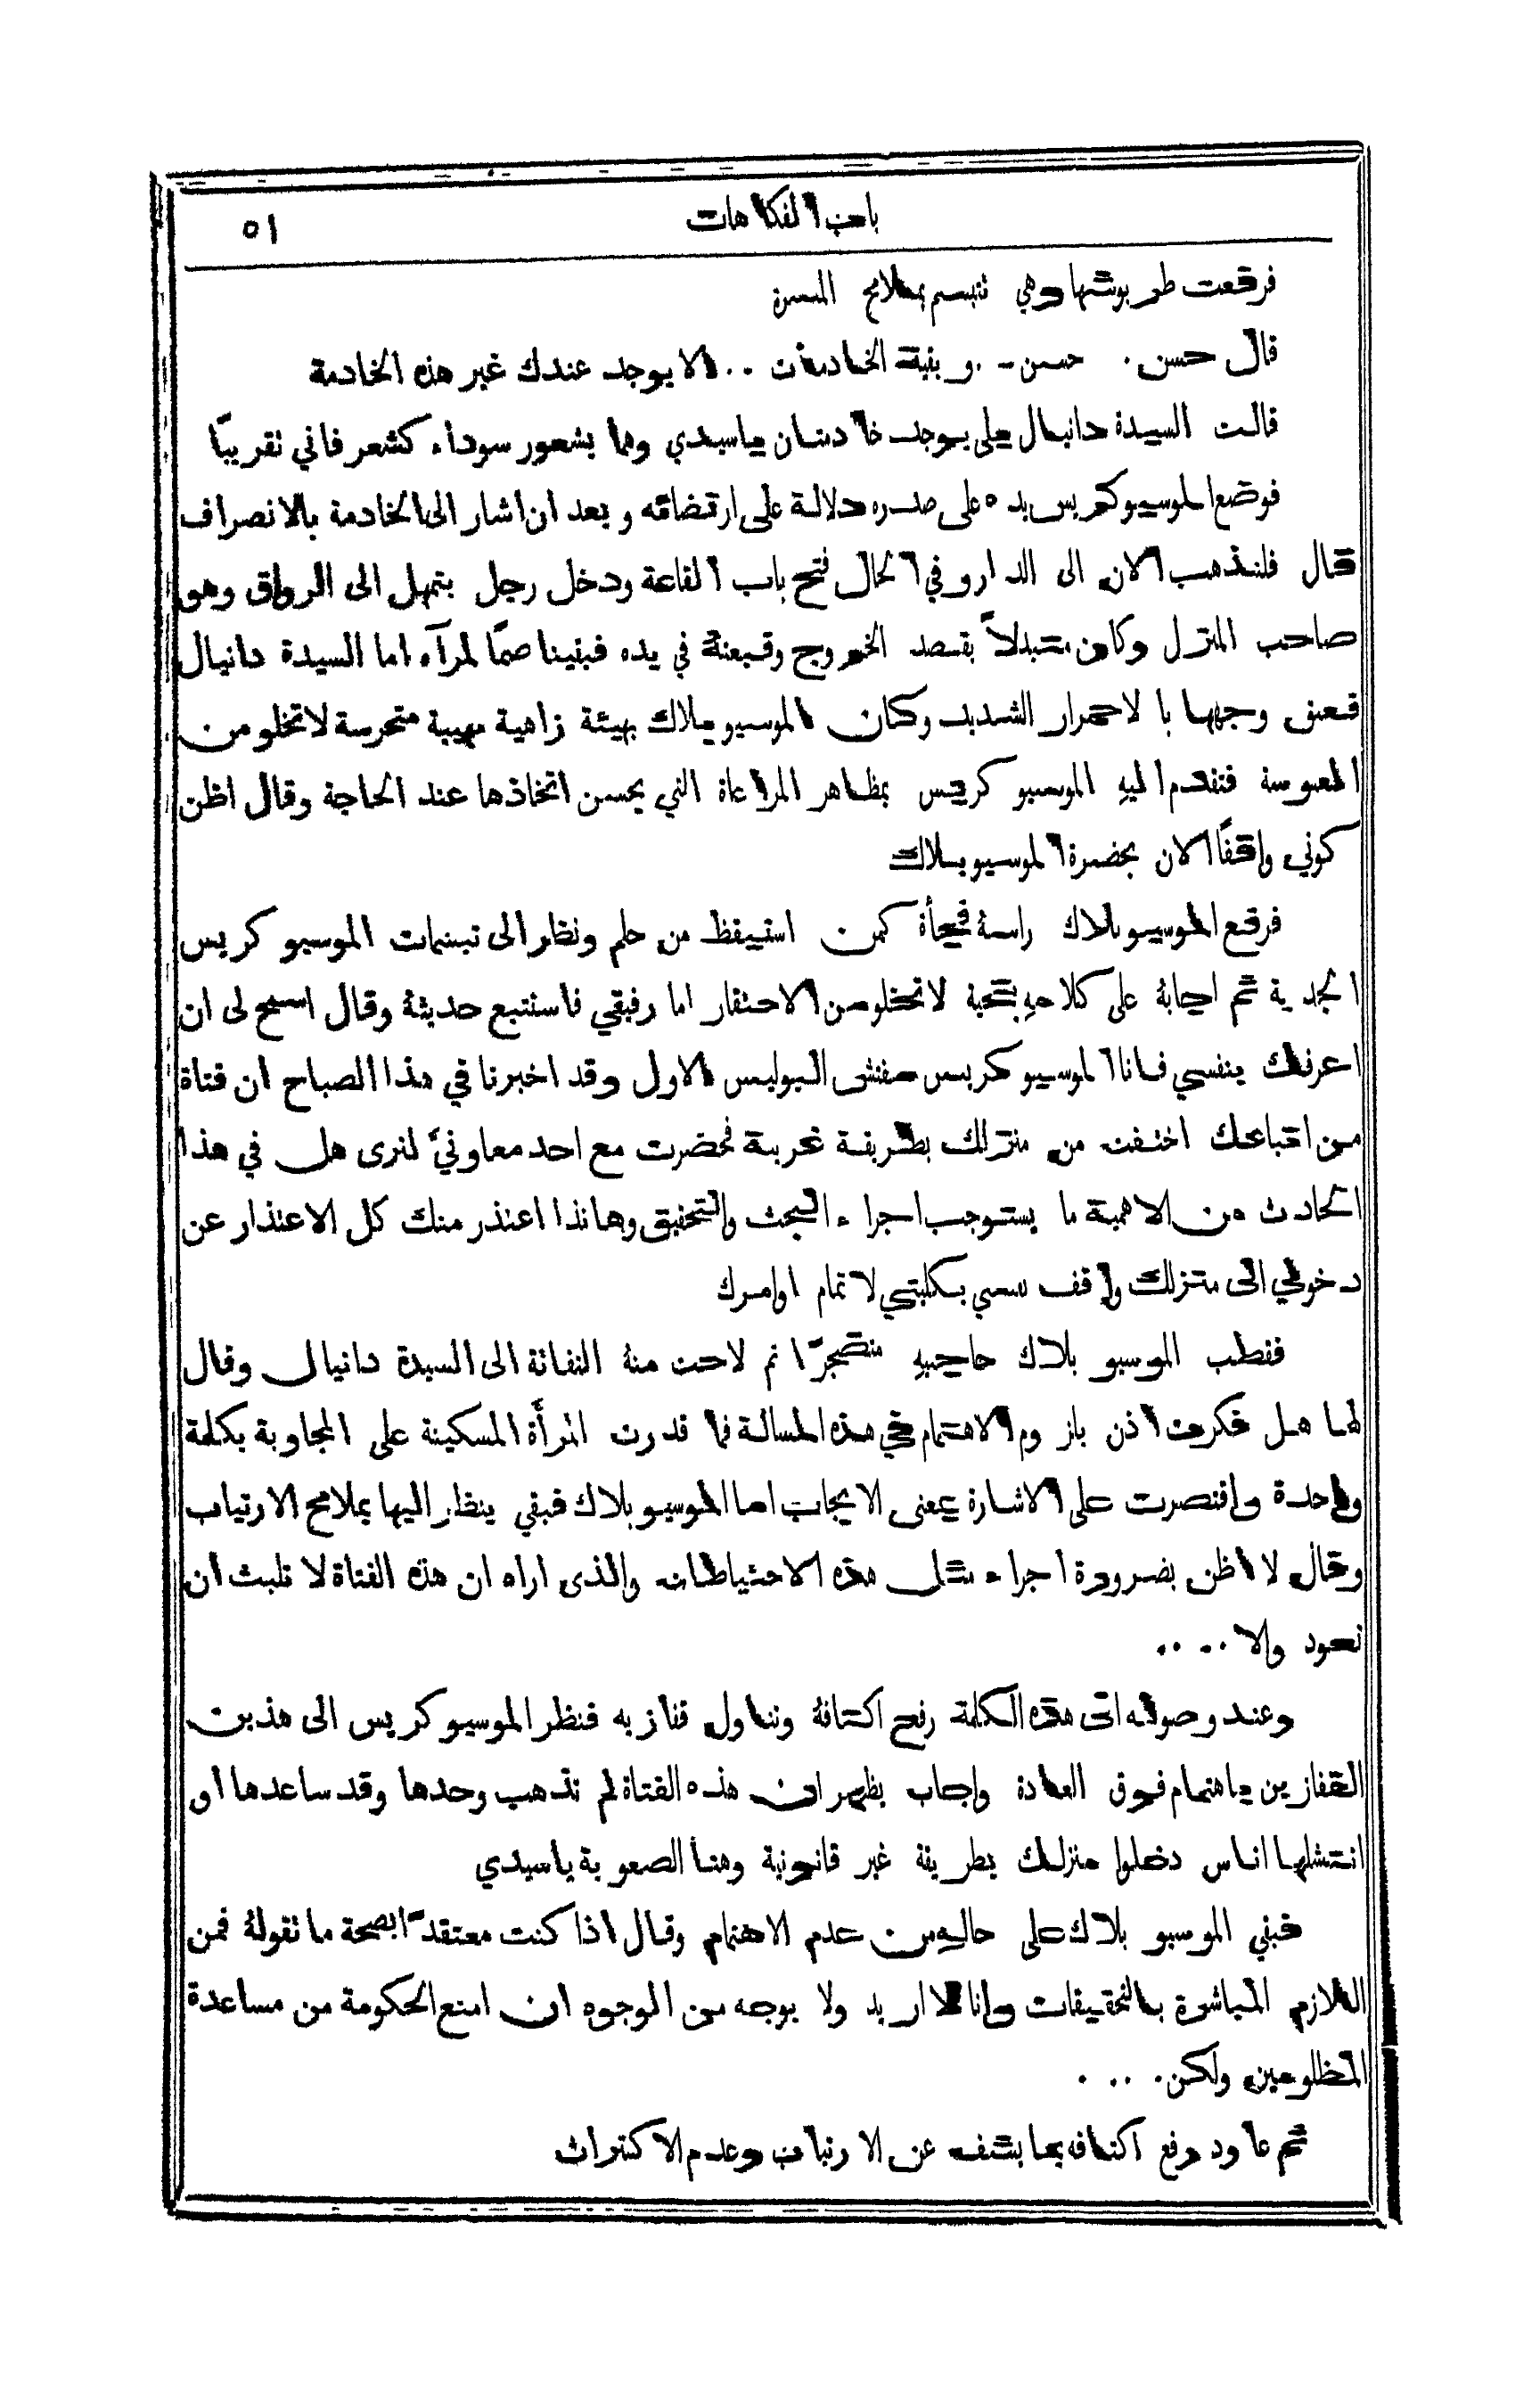 باب الفكاهات
٥١
فرفعت طربوشها وهي تتبسم بملامح المسرة
قال حسن . حسن - . وبقية الخادمات .. الا يوجد عندك غير هذه الخادمة
قالت السيدة دانيال بلى يوجد خادمتان ياسيدي وهما بشعور سوداء كشعر فاني تقريبًا
فوضع الموسيو كريس يده على صدره دلالة على ارتضائه وبعد ان اشار الى الخادمة بالانصراف
قال فلنذهب الان الى الدار وفي الحال فتح باب القاعة ودخل رجل بتمهل الى الرواق وهو
صاحب المنزل وكان متبدلاً بقصد الخروج وقبعته في يده فبقينا صمًا لمرآه اما السيدة دانيال
فعق وجهها بالاحمرار الشديد وكان الموسيو بلاك بهيئة زاهية مهيبة متحرسة لا تخلو من
العبوسة فتقدم اليهِ الموسيو كريس بمظاهر المراعاة التي يحسن اتخاذها عند الحاجة وقال اظن
كوني واقفًا الان بحضرة الموسيو بلاك
فرفع الموسيو بلاك راسهُ فجأة كمن استيقظ من حلم ونظر الى تبسمات الموسيو كريس
الجدية ثم اجابهُ على كلامهِ بتحية لا تخلو من الاحتقار اما رفيقي فاستتبع حديثهُ وقال اسمح لى ان
اعرفك بنفسي فانا الموسيو كريس مفتش البوليس الاول وقد اخبرنا في هذا الصباح ان فتاة
من اتباعك اختفت من منزلك بطريقة غريبة فحضرت مع احد معاونيَّ لنرى هل في هذا
الحادث من الاهمية ما يستوجب اجراء البحث والتحقيق وهانذا اعتذر منك كل الاعتذار عن
دخولي الى منزلك واقف نفسي بكليتي لاتمام اوامرك
فقطب الموسيو بلاك حاجبيهِ متضجرًا ثم لاحت منهُ التفاتة الى السيدة دانيال وقال
لها هل فكرت اذن بلزوم الاهتمام في هذه المسالة فما قدرت المرأَة المسكينة على المجاوبة بكلمة
واحدة واقتصرت على الاشارة بمعنى الايجاب اما الموسيو بلاك فبقي ينظر اليها بملامح الارتياب
وقال لا اظن بضرورة اجراء مثل هذه الاحتياطات والذى اراه ان هذه الفتاة لا تلبث ان
تعود والا ....
وعند وصوله الى هذه الكلمة رفع اكتافهُ وتناول قفازيه فنظر الموسيو كريس الى هذين
القفازين باهتمام فوق العادة واجاب يظهر ان هذه الفتاة لم تذهب وحدها وقد ساعدها او
انتشلها اناس دخلوا منزلك بطريقة غير قانونية وهنا الصعوبة ياسيدي
فبقي الموسيو بلاك على حاله من عدم الاهتمام وقال اذا كنت معتقدًا بصحة ما تقولهُ فمن
اللازم المباشرة بالتحقيقات وانا لا اريد ولا بوجه من الوجوه ان امنع الحكومة من مساعدة
المظلومين ولكن. .. .
ثم عاود رفع اكتافه بما يشف عن الارتياب وعدم الاكتراث